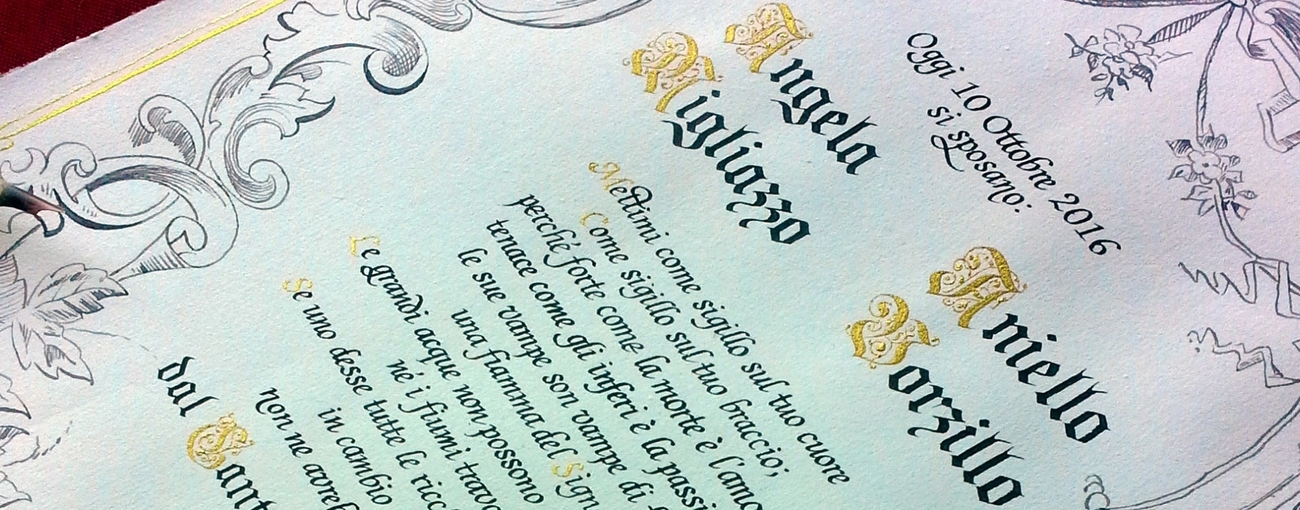 Oggi 10 Ottobre 2016
si sposano:
Angela
Migliazzo
Aniello
Borzillo
Mettimi come sigillo sul tuo cuore
Come sigillo sul tuo braccio;
perché forte come la morte è l'amo
tenace come gli inferi è la passi
le sue vampe son vampe di
una fiamma del Sign
Le grandi acque non possono
né i fiumi travo
Se uno desse tutte le ricc
in cambio
non ne avreb
dal Sant